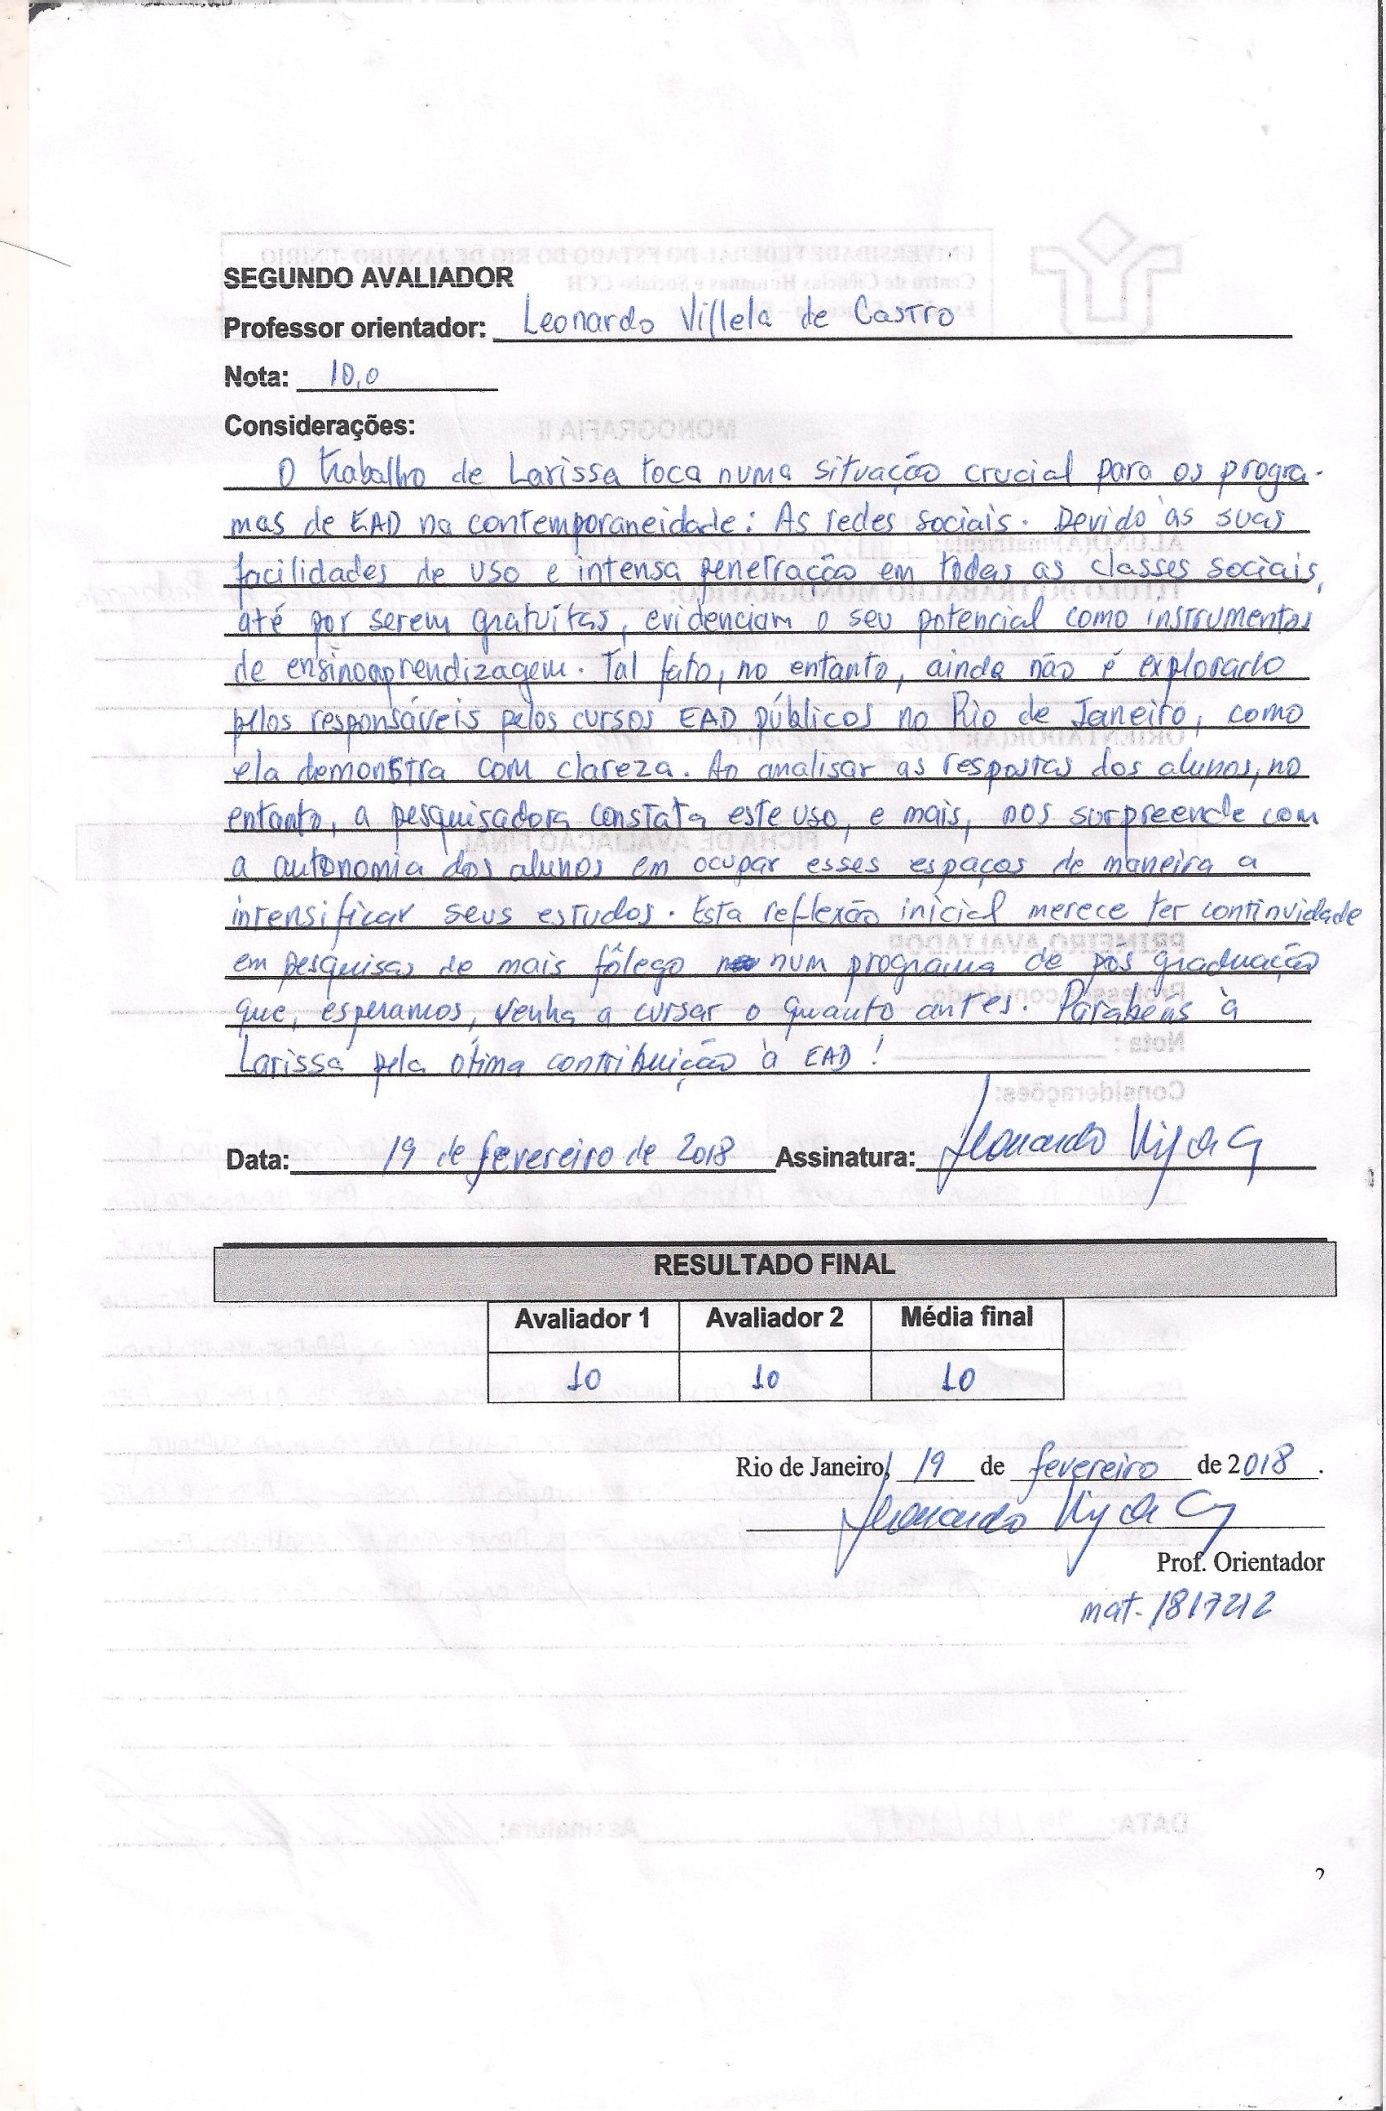 SEGUNDO AVALIADOR
Professor orientador: Leonardo Villela de Castro
Nota: 10,0
Considerações:
O trabalho de Larissa toca numa situação crucial para os progra-
mas de EAD na contemporaneidade: As redes sociais. Devido às suas
facilidades de uso e intensa penetração em todas as classes sociais,
até por serem gratuitas, evidenciam o seu potencial como instrumentos
de ensinoaprendizagem. Tal fato, no entanto, ainda não é explorado
pelos responsáveis pelos cursos EAD públicos no Rio de Janeiro, como
ela demonstra com clareza. Ao analisar as respostas dos alunos, no
entanto, a pesquisadora constata este uso, e mais, nos surpreende com
a autonomia dos alunos em ocupar esses espaços de maneira a
intensificar seus estudos. Esta reflexão inicial merece ter continuidade
em pesquisas de mais fôlego num programa de pós graduação
que, esperamos, venha a cursar o quanto antes. Parabéns à
Larissa pela ótima contribuição à EAD!
Data: 19 de fevereiro de 2018 Assinatura: Leonardo
RESULTADO FINAL
Avaliador 1 Avaliador 2 Média final
10 10 10
Rio de Janeiro, 19 de fevereiro de 2018.
Leonardo
Prof. Orientador
mat. 1817212
2